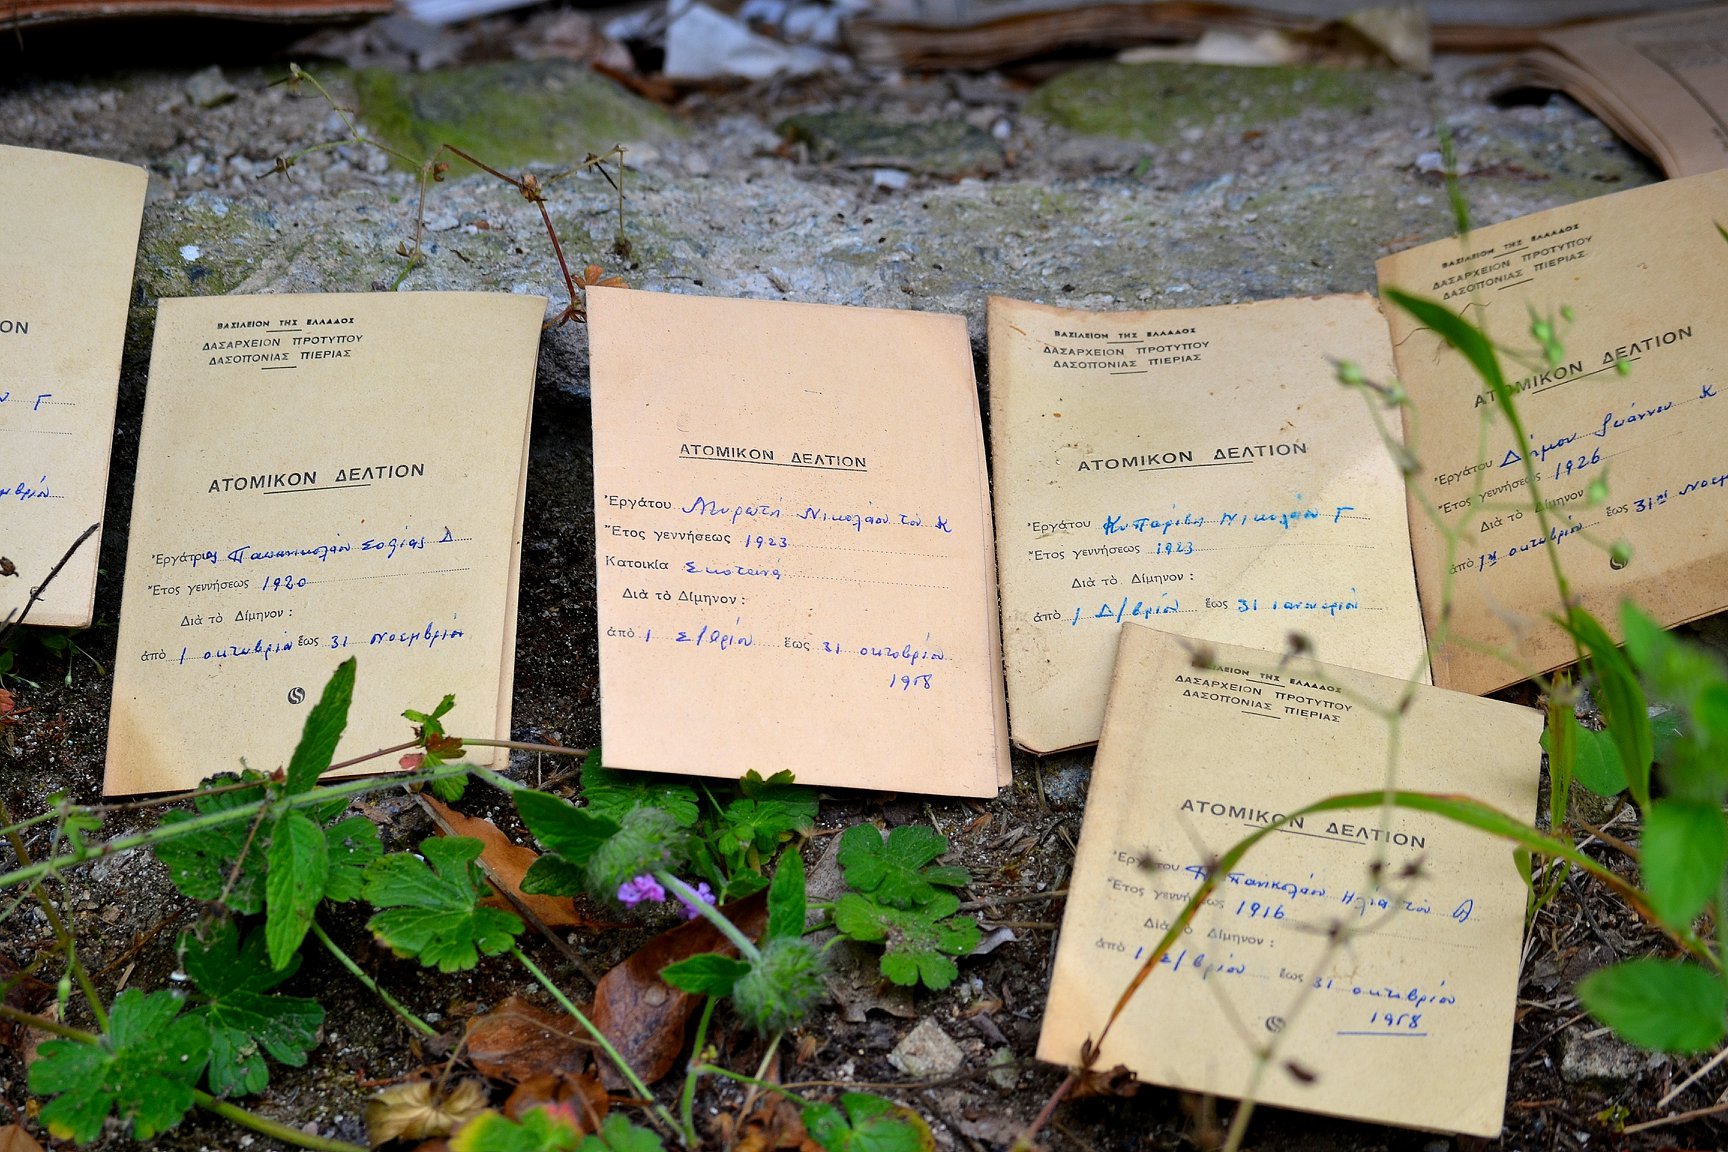 ΟΝ
Γ
ΒΑΣΙΛΕΙΟΝ ΤΗΣ ΕΛΛΑΔΟΣ
ΔΑΣΑΡΧΕΙΟΝ ΠΡΟΤΥΠΟΥ
ΔΑΣΟΠΟΝΙΑΣ ΠΙΕΡΙΑΣ
ΑΤΟΜΙΚΟΝ ΔΕΛΤΙΟΝ
Ἐργάτριας Παπανικολάου Σοφίας Δ
Ἔτος γεννήσεως 1920
Διὰ τὸ Δίμηνον :
ἀπὸ 1 οκτωβρίου ἕως 31 νοεμβρίου
ΑΤΟΜΙΚΟΝ ΔΕΛΤΙΟΝ
Ἐργάτου Νικολάου του Κ
Ἔτος γεννήσεως 1923
Κατοικία Σκοτεινά
Διὰ τὸ Δίμηνον :
ἀπὸ 1 Σ/βρίου ἕως 31 οκτοβρίου
1958
ΒΑΣΙΛΕΙΟΝ ΤΗΣ ΕΛΛΑΔΟΣ
ΔΑΣΑΡΧΕΙΟΝ ΠΡΟΤΥΠΟΥ
ΔΑΣΟΠΟΝΙΑΣ ΠΙΕΡΙΑΣ
ΑΤΟΜΙΚΟΝ ΔΕΛΤΙΟΝ
Ἐργάτου Κυπαρίση Νικολάου Γ
Ἔτος γεννήσεως 1923
Διὰ τὸ Δίμηνον :
ἀπὸ 1 Δ/βρίου ἕως 31 ιανουαρίου
ΒΑΣΙΛΕΙΟΝ ΤΗΣ ΕΛΛΑΔΟΣ
ΔΑΣΑΡΧΕΙΟΝ ΠΡΟΤΥΠΟΥ
ΔΑΣΟΠΟΝΙΑΣ ΠΙΕΡΙΑΣ
ΑΤΟΜΙΚΟΝ ΔΕΛΤΙΟΝ
Ἐργάτου Δήμου Ιωάννου Κ
Ἔτος γεννήσεως 1926
Διὰ τὸ Δίμηνον
ἀπὸ 1η οκτωβρίου ἕως 31η νοεμ
ΒΑΣΙΛΕΙΟΝ ΤΗΣ ΕΛΛΑΔΟΣ
ΔΑΣΑΡΧΕΙΟΝ ΠΡΟΤΥΠΟΥ
ΔΑΣΟΠΟΝΙΑΣ ΠΙΕΡΙΑΣ
ΑΤΟΜΙΚΟΝ ΔΕΛΤΙΟΝ
Ἐργάτου Παπανικολάου Ηλία του Α
Ἔτος γεννήσεως 1916
Διὰ τὸ Δίμηνον :
ἀπὸ 1 Σ/βρίου ἕως 31 οκτωβρίου
1958